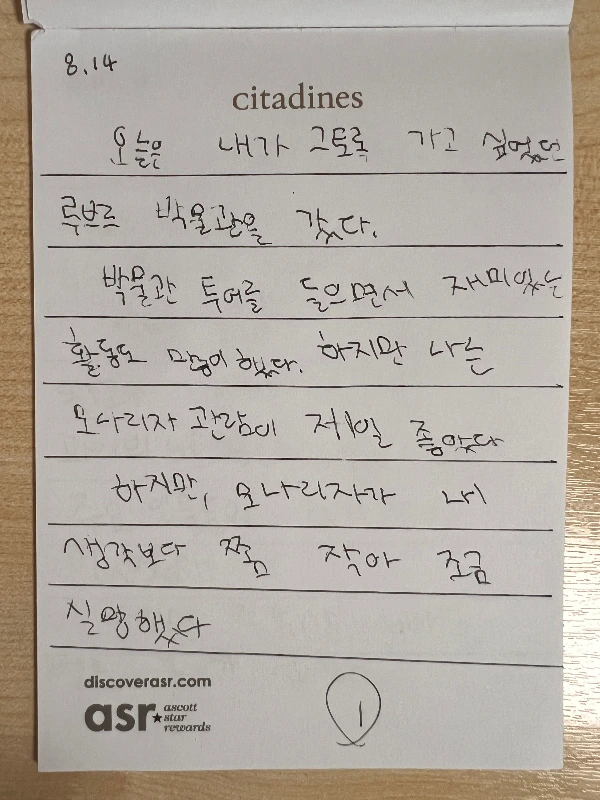 8.14
citadines
오늘은 내가 그토록 가고 싶었던
루브르 박물관을 갔다.
박물관 투어를 들으면서 재미있는
활동도 많이 했다. 하지만 나는
모나리자 관람이 제일 좋았다
하지만, 모나리자가 내
생각보다 쫌 작아 조금
실망했다
discoverasr.com
asr ascott
star
rewards
1